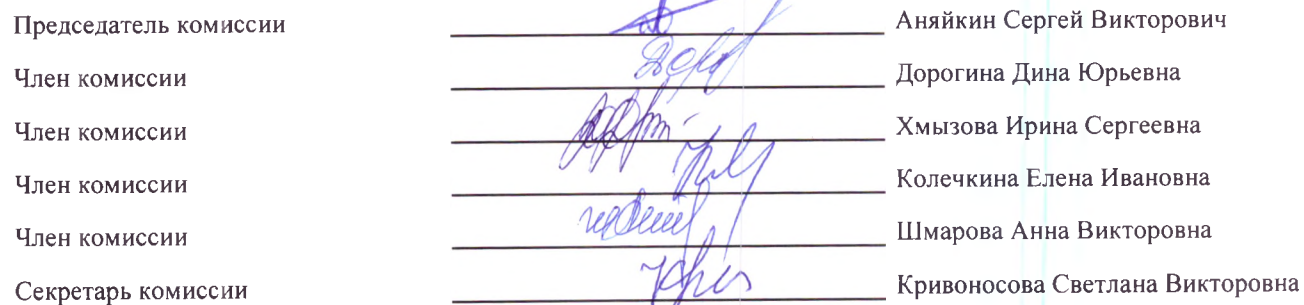 Председатель комиссии Аняйкин Сергей Викторович
Член комиссии Дорогина Дина Юрьевна
Член комиссии Хмызова Ирина Сергеевна
Член комиссии Колечкина Елена Ивановна
Член комиссии Шмарова Анна Викторовна
Секретарь комиссии Кривоносова Светлана Викторовна